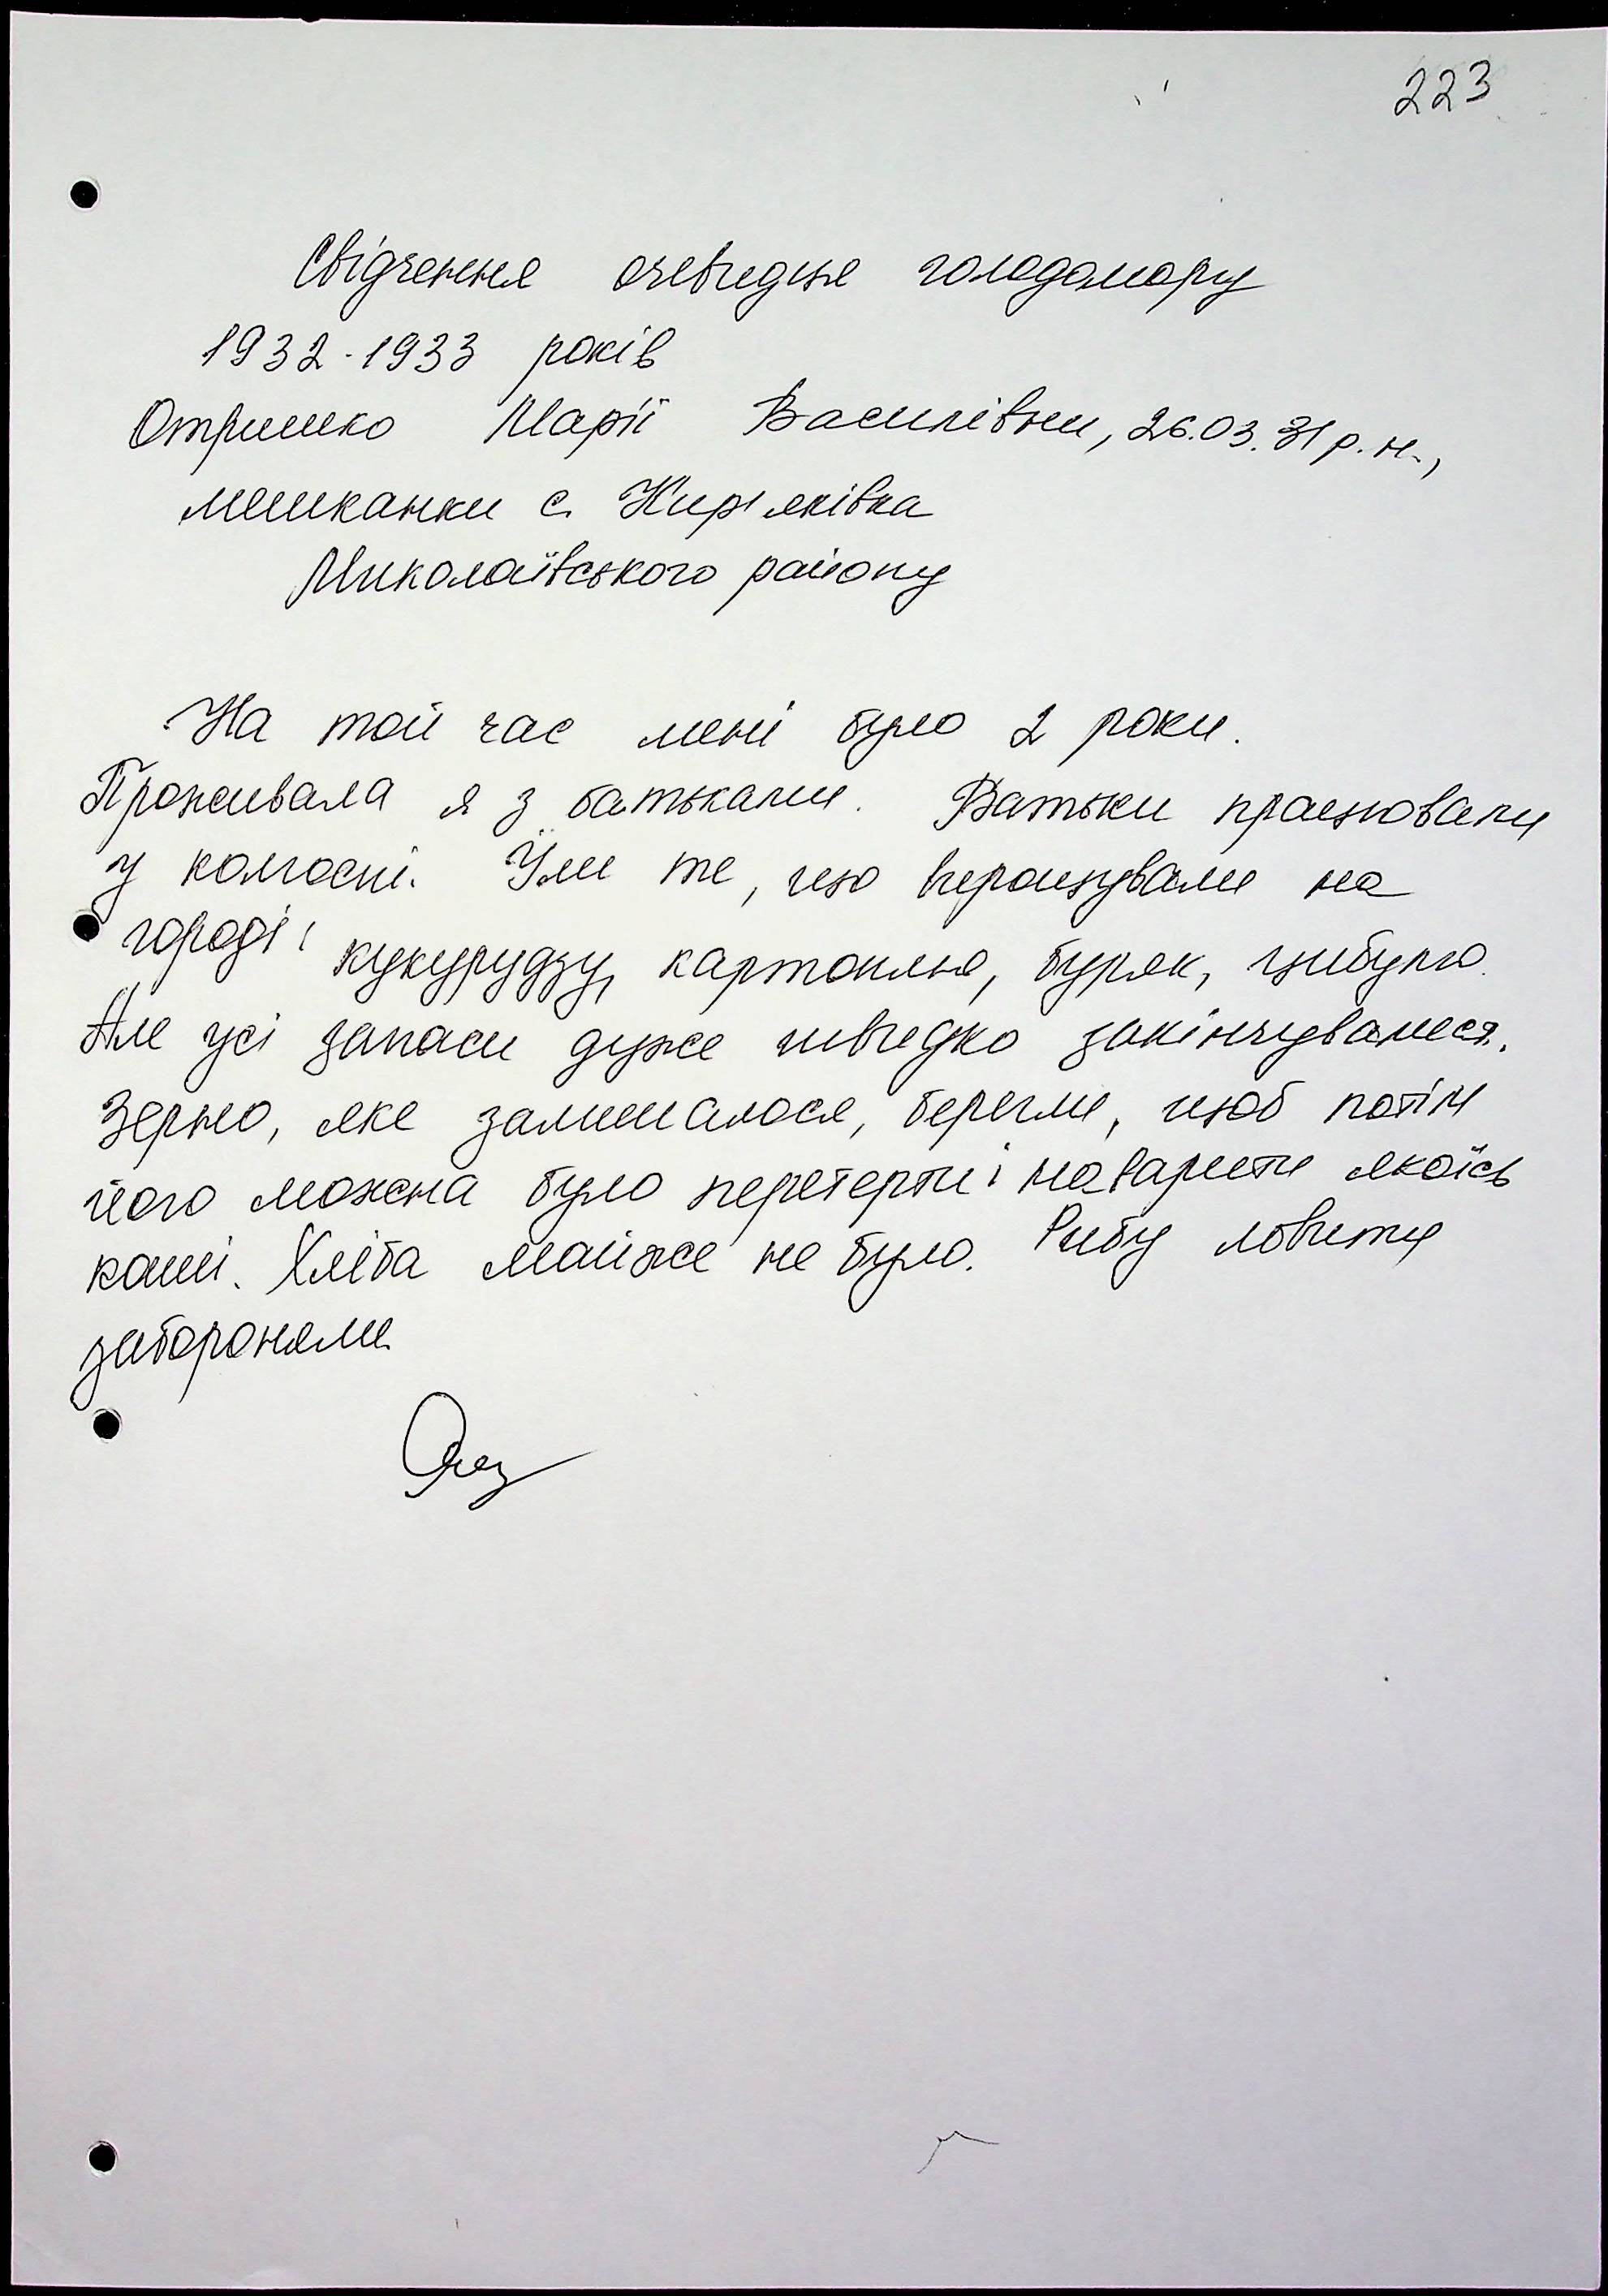 223
Свідчення очевидця голодомору
1932-1933 років
Отришко Марії Василівни, 26.03.31 р.н.,
мешканки с. Кир'яківка
Миколаївського району
На той час мені було 2 роки.
Проживала я з батьками. Батьки працювали
у колгоспі. Їли те, що вирощували на
городі: кукурудзу, картоплю, буряк, цибулю.
Але усі запаси дуже швидко закінчувалися.
Зерно, яке залишалося, берегли, щоб потім
його можна було перетерти і наварити якоїсь
каші. Хліба майже не було. Рибу ловити
забороняли.